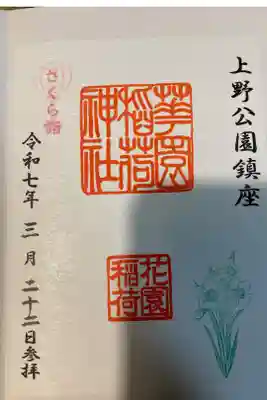 上野公園鎮座
華園
稲荷
神社
花園
稲荷
さくら詣
令和七年三月二十二日参拝